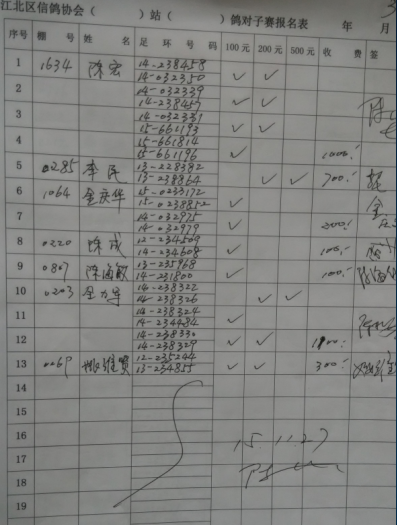 江北区信鸽协会（ ）站（ ）鸽对子赛报名表 年 月
序号 棚号 姓名 足环号码 100元 200元 500元 收费 签
1 1634 陈宏 14-238458 ✓ ✓
14-032350
2 14-032339
14-238457 ✓ ✓
3 14-032331
15-661193 ✓ ✓
4 15-661814
15-661196 ✓ 1000.-
5 0285 李民 13-228382
13-238864 ✓ ✓ 700.-
6 1064 金庆华 15-0233172
15-0238852 ✓
7 14-032975
14-032979 ✓ 200.-
8 0220 12-234509
14-234608 ✓ 100.-
9 0807 13-235968
14-231800 ✓ 100.-
10 0203 14-238322
14-238326 ✓ ✓
11 14-238324
14-234484 ✓
12 14-238330
14-238329 ✓ ✓
13 0269 12-235244
13-234855 ✓ ✓ 300.-
14
15
16
17 15.11.27
18
19